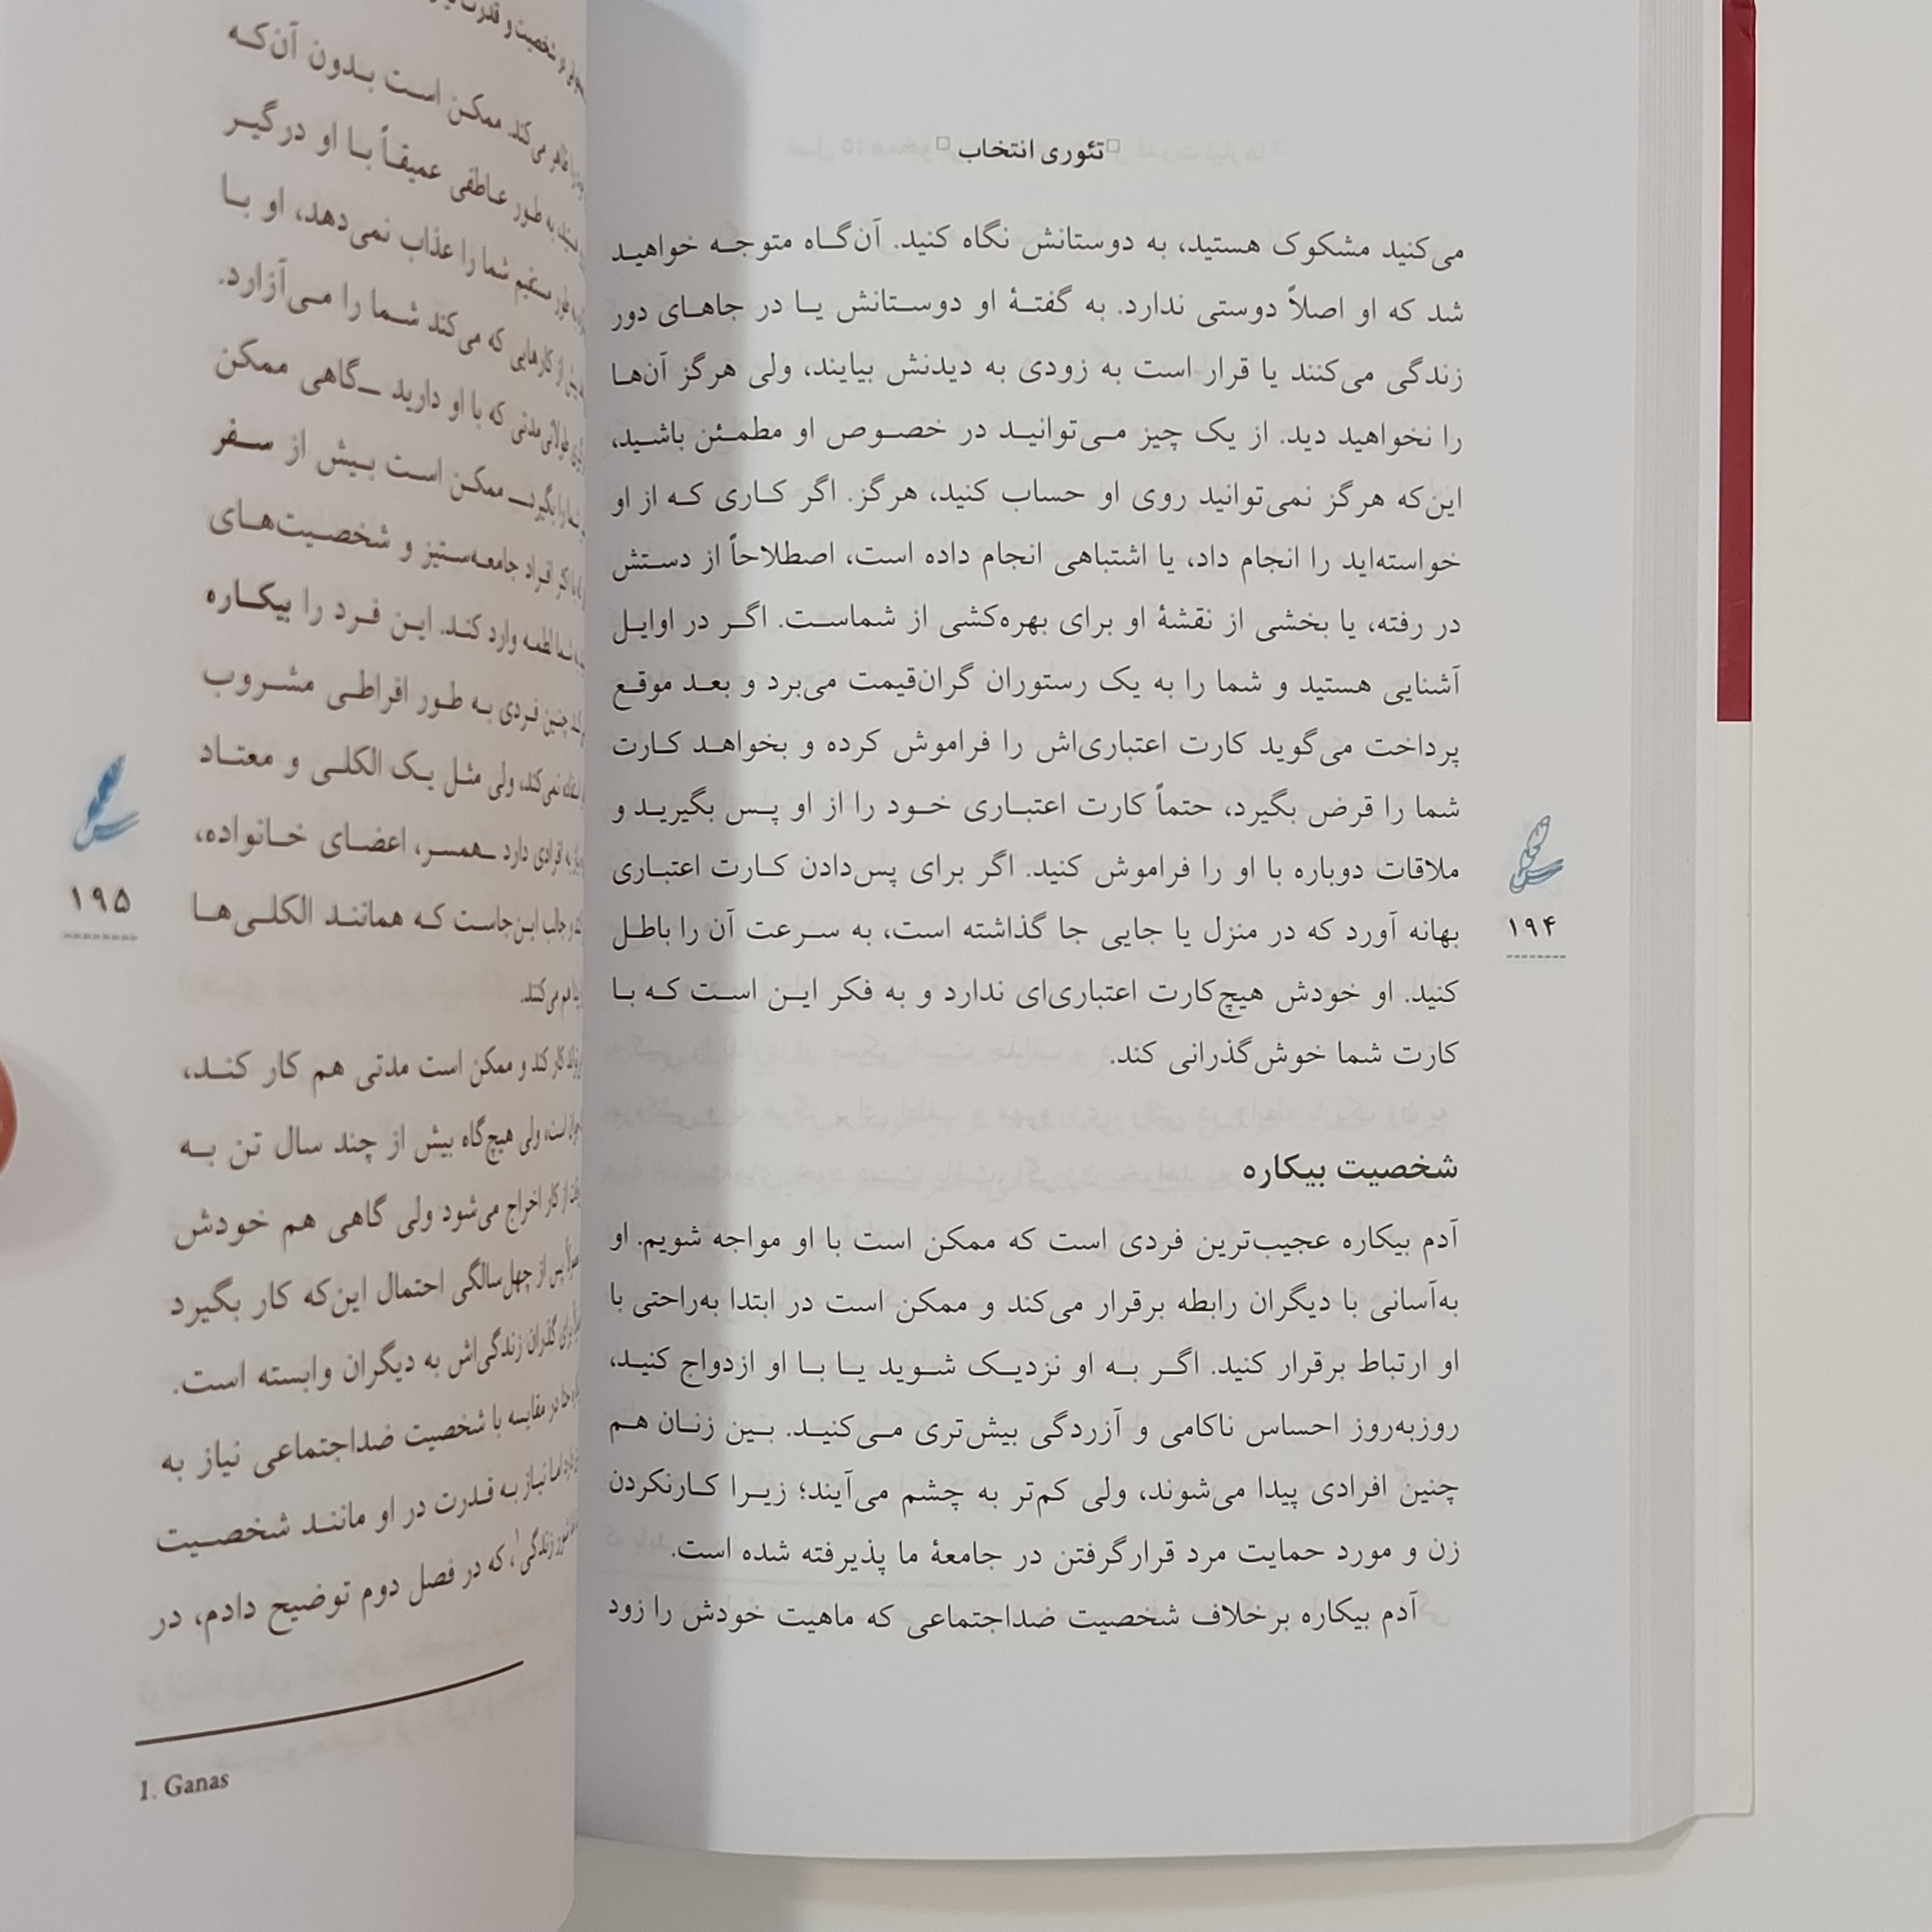 تئوری انتخاب
می‌کنید مشکوک هستید، به دوستانش نگاه کنید. آن‌گاه متوجه خواهید
شد که او اصلاً دوستی ندارد. به گفتهٔ او دوستانش یا در جاهای دور
زندگی می‌کنند یا قرار است به زودی به دیدنش بیایند، ولی هرگز آن‌ها
را نخواهید دید. از یک چیز می‌توانید در خصوص او مطمئن باشید،
این‌که هرگز نمی‌توانید روی او حساب کنید، هرگز. اگر کاری که از او
خواسته‌اید را انجام داد، یا اشتباهی انجام داده است، اصطلاحاً از دستش
در رفته، یا بخشی از نقشهٔ او برای بهره‌کشی از شماست. اگر در اوایل
آشنایی هستید و شما را به یک رستوران گران‌قیمت می‌برد و بعد موقع
پرداخت می‌گوید کارت اعتباری‌اش را فراموش کرده و بخواهد کارت
شما را قرض بگیرد، حتماً کارت اعتباری خود را از او پس بگیرید و
ملاقات دوباره با او را فراموش کنید. اگر برای پس‌دادن کارت اعتباری
بهانه آورد که در منزل یا جایی جا گذاشته است، به سرعت آن را باطل
کنید. او خودش هیچ‌کارت اعتباری‌ای ندارد و به فکر این است که با
کارت شما خوش‌گذرانی کند.
شخصیت بیکاره
آدم بیکاره عجیب‌ترین فردی است که ممکن است با او مواجه شویم. او
به‌آسانی با دیگران رابطه برقرار می‌کند و ممکن است در ابتدا به‌راحتی با
او ارتباط برقرار کنید. اگر به او نزدیک شوید یا با او ازدواج کنید،
روزبه‌روز احساس ناکامی و آزردگی بیش‌تری می‌کنید. بین زنان هم
چنین افرادی پیدا می‌شوند، ولی کم‌تر به چشم می‌آیند؛ زیرا کارنکردن
زن و مورد حمایت مرد قرارگرفتن در جامعهٔ ما پذیرفته شده است.
آدم بیکاره برخلاف شخصیت ضداجتماعی که ماهیت خودش را زود
۱۹۴
شخصیت و قدرت
می‌کند. ممکن است بدون آن‌که
به طور عاطفی عمیقاً با او درگیر
طور مستقیم شما را عذاب نمی‌دهد، او با
از کارهایی که می‌کند شما را می‌آزارد.
طولانی‌مدتی که با او دارید ــ گاهی ممکن
شما را بگیرد ــ ممکن است بیش از سفر
اکثر افراد جامعه‌ستیز و شخصیت‌های
شما لطمه وارد کند. این فرد را بیکاره
چنین فردی به طور افراطی مشروب
استفاده نمی‌کند، ولی مثل یک الکلی و معتاد
افرادی دارد ــ همسر، اعضای خانواده،
جالب این‌جاست که همانند الکلی‌ها
هم می‌کنند.
کار کند و ممکن است مدتی هم کار کند،
است، ولی هیچ‌گاه بیش از چند سال تن به
از کار اخراج می‌شود ولی گاهی هم خودش
پس از چهل‌سالگی احتمال این‌که کار بگیرد
برای گذران زندگی‌اش به دیگران وابسته است.
در مقایسه با شخصیت ضداجتماعی نیاز به
اما نیاز به قدرت در او مانند شخصیت
زندگی۱، که در فصل دوم توضیح دادم، در
1. Ganas
۱۹۵